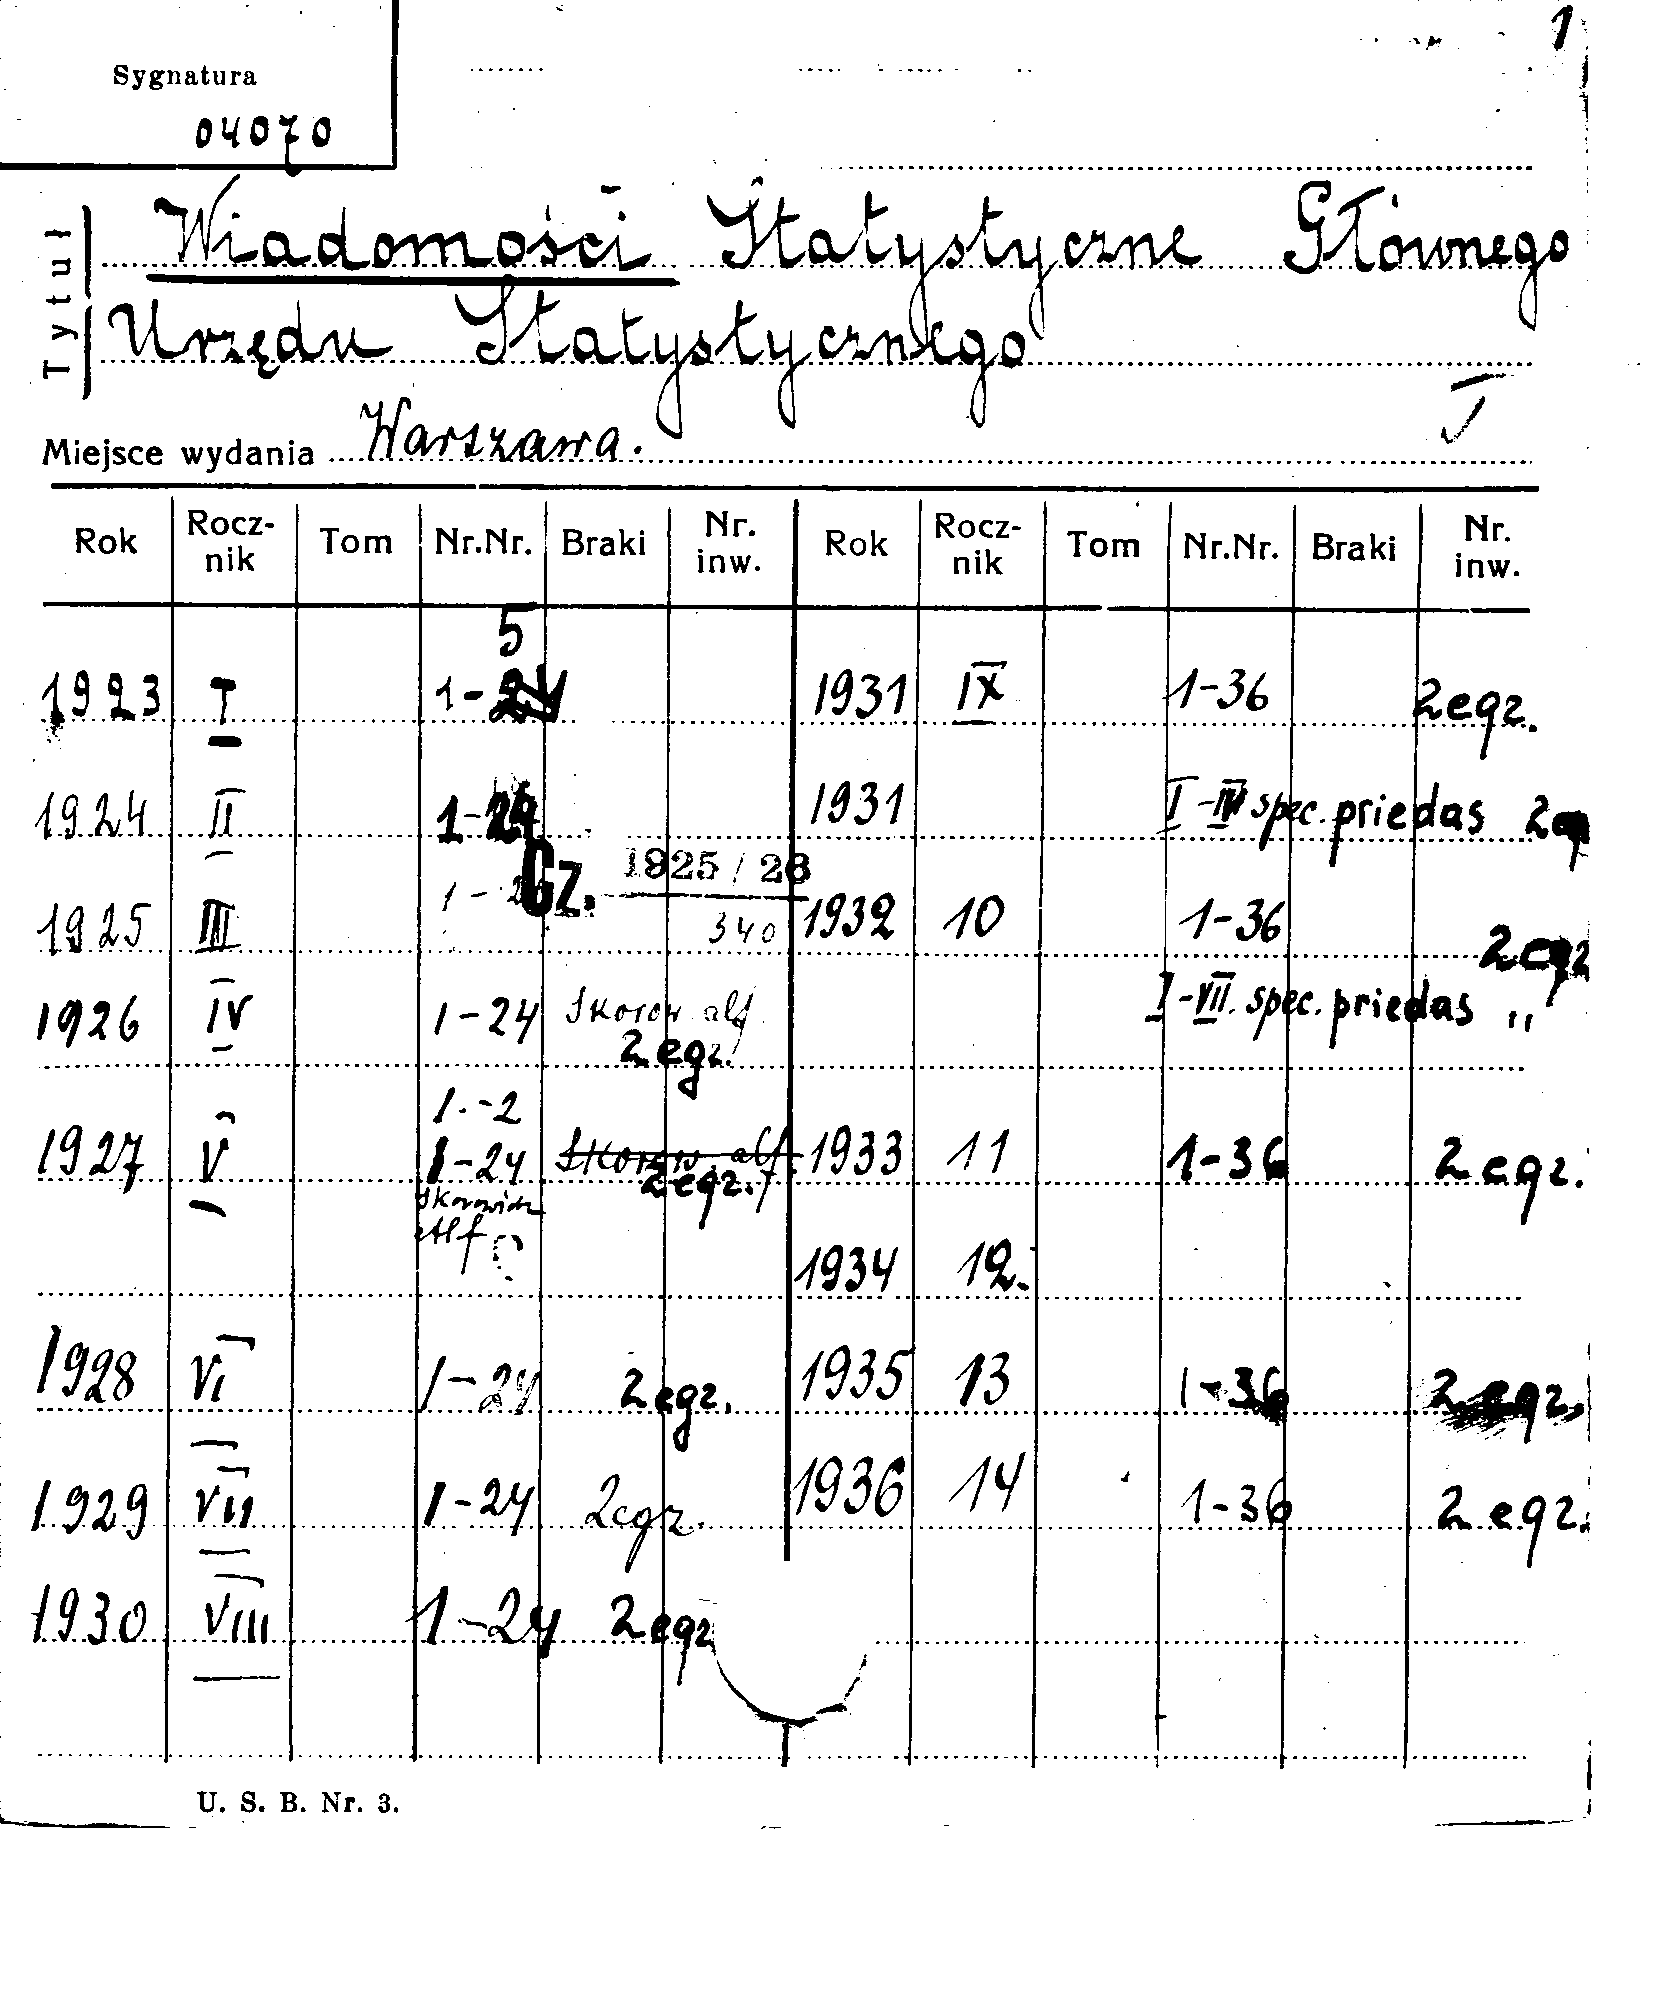 1
Sygnatura
04070
Tytuł
Wiadomości Statystyczne Głównego
Urzędu Statystycznego
I
Miejsce wydania Warszawa.
Rok Rocz-nik Tom Nr.Nr. Braki Nr. inw. Rok Rocz-nik Tom Nr.Nr. Braki Nr. inw.
5
1923 I 1-24 1931 IX 1-36 2egz.
1924 II 1-24 1931 I-IV spec. priedas
Cz. 1925/26
1925 III 340 1932 10 1-36 2egz
1926 IV 1-24 Skorow. alf. I-VII. spec. priedas "
2 egz.
1.-2
1927 V 1-24 Skorow. alf. 1933 11 1-36 2 egz.
2 egz.
Skorowidz
Alf
1934 12.
1928 VI 1-24 2 egz. 1935 13 1-36 2 egz.
1929 VII 1-24 2egz. 1936 14 1-36 2 egz.
1930 VIII 1-24 2 egz
U. S. B. Nr. 3.